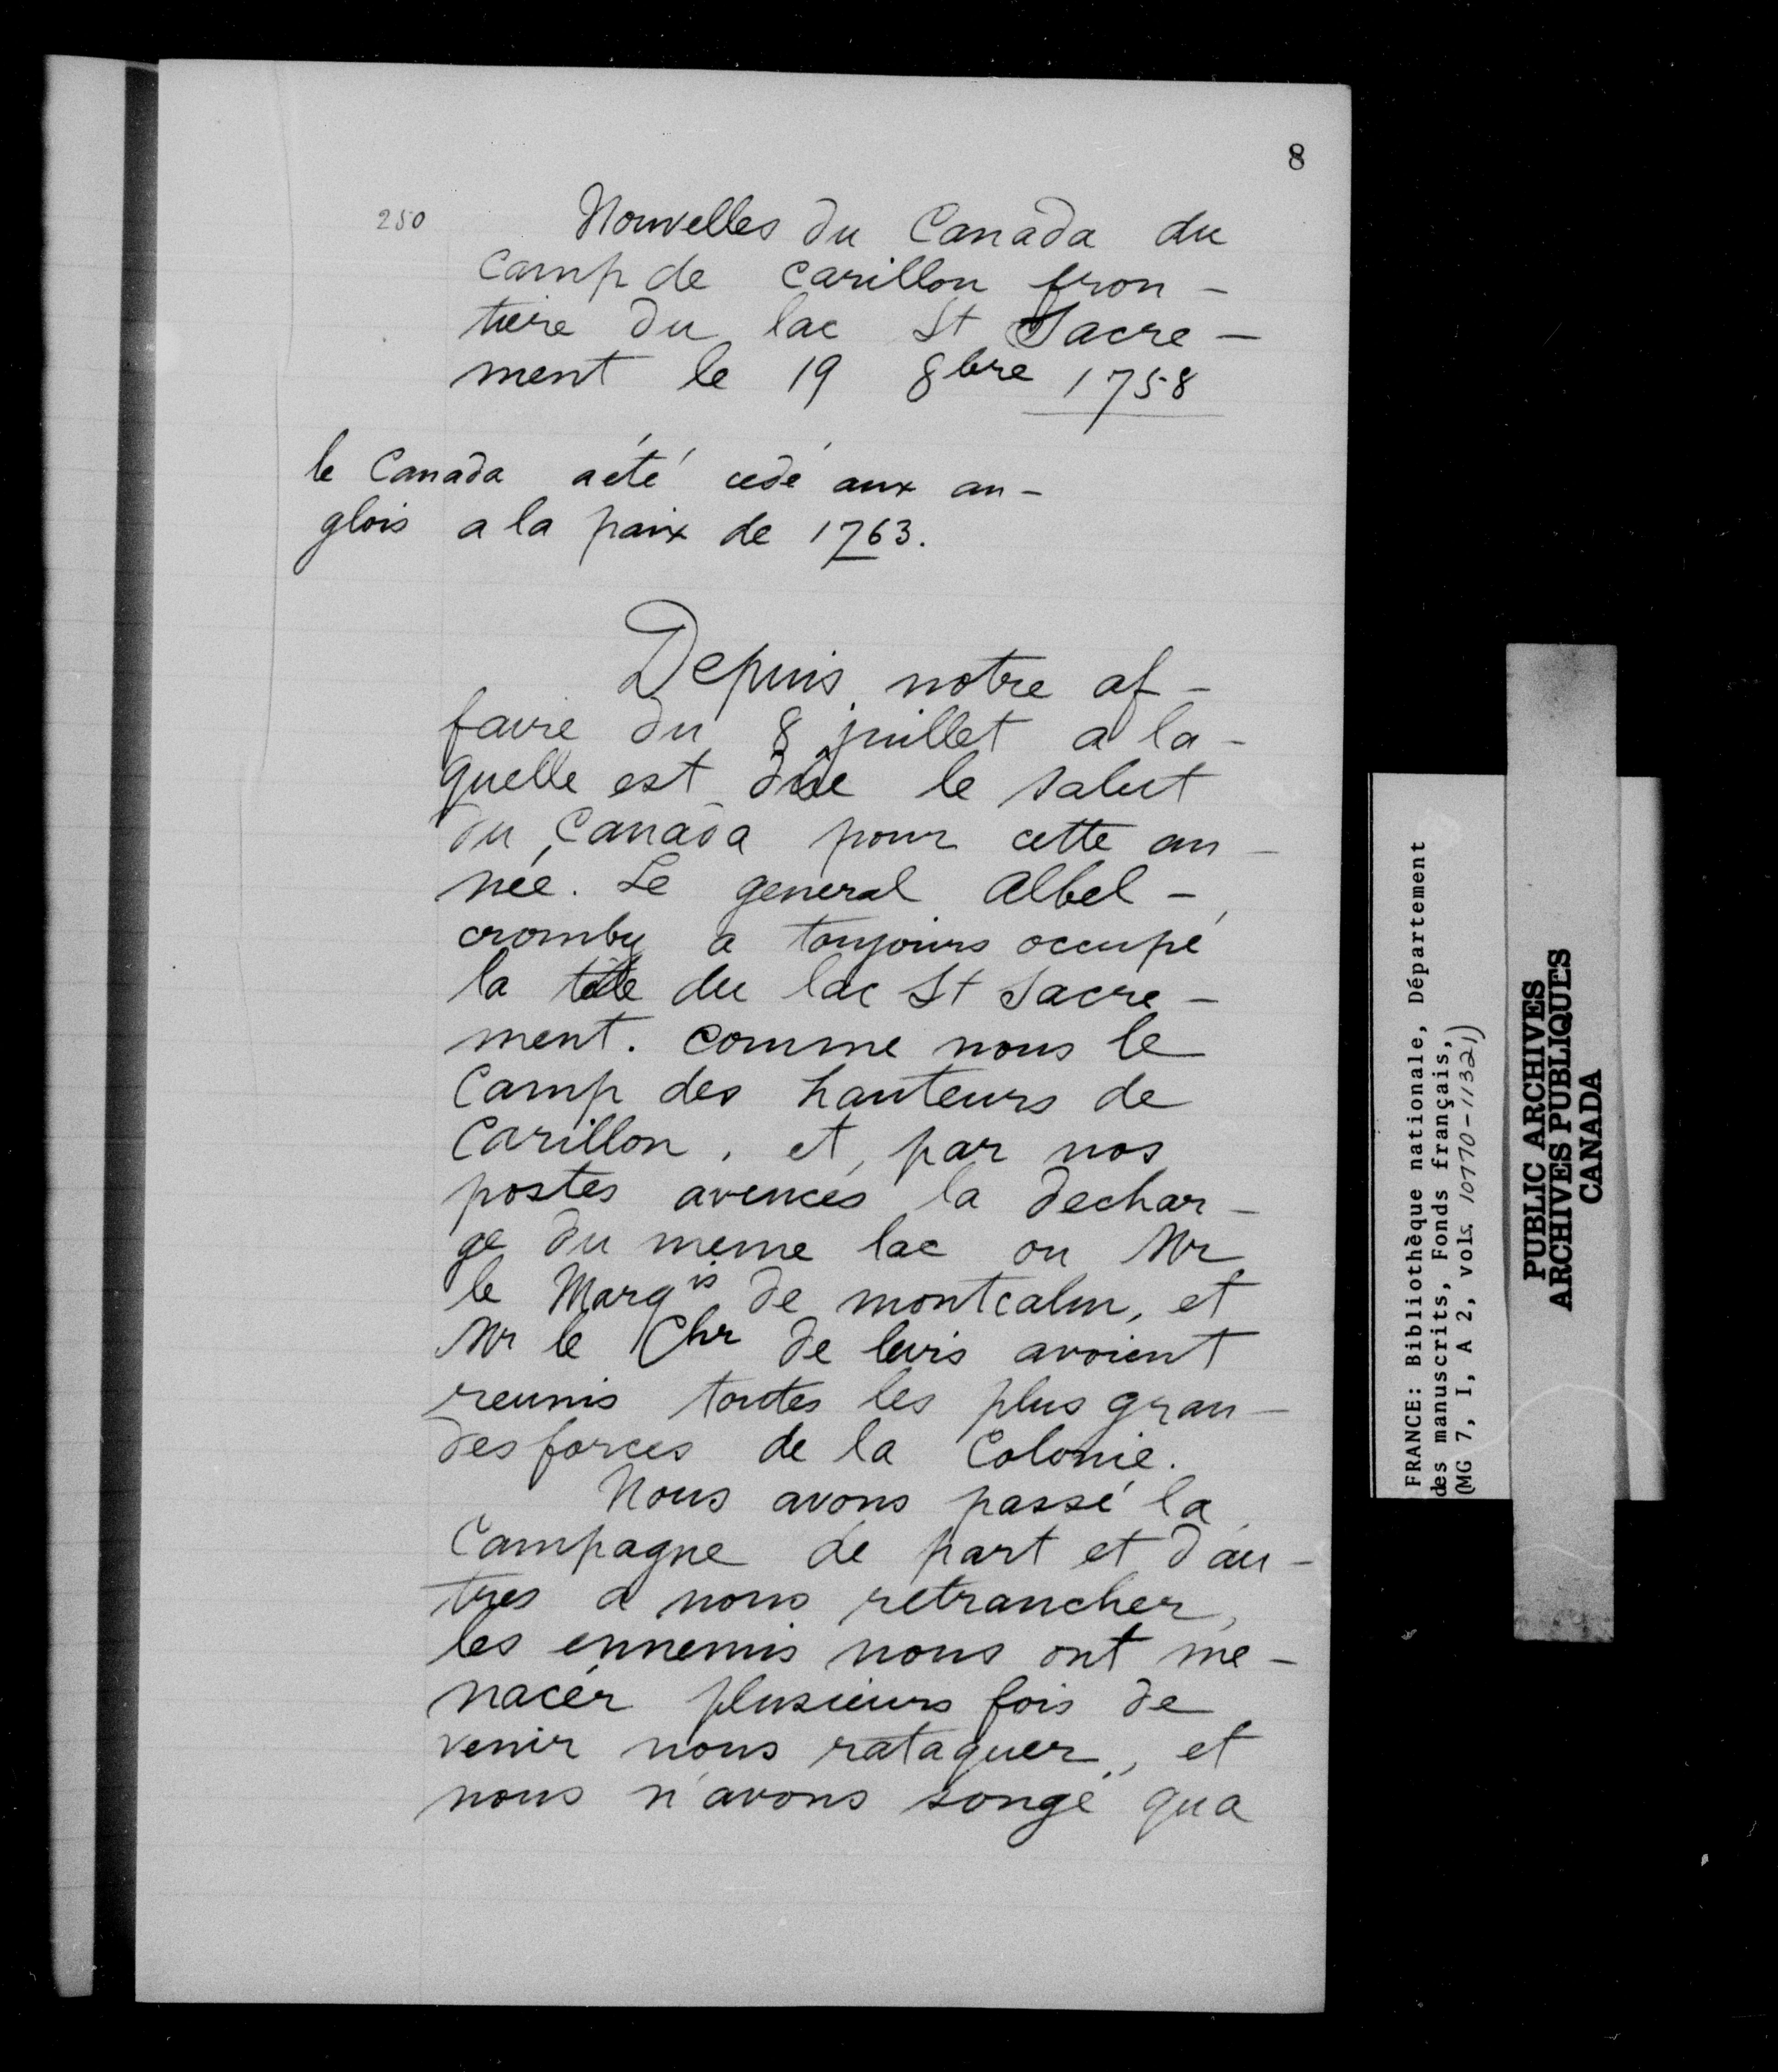 8
250
Nouvelles du Canada du
camp de carillon fron-
tiere du lac St Sacre-
ment le 19 8bre 1758
le Canada a eté cedé aux an-
glois a la paix de 1763.
Depuis notre af-
faire du 8 juillet a la-
quelle est dûe le salut
du Canada pour cette an-
née. Le general Albel-
cromby a toujours occupé
la tête du lac St Sacre-
ment. comme nous le
Camp des hauteurs de
Carillon, et, par nos
postes avencés la dechar-
ge du meme lac ou Mr
le Marqis de montcalm, et
Mr le Chr de levis avoient
reunis toutes les plus gran-
des forces de la Colonie.
Nous avons passé la
Campagne de part et d'au-
tres a nous retrancher,
les ennemis nous ont me-
nacér plusieurs fois de
venir nous rataquer, et
nous n'avons songé qua
FRANCE: Bibliothèque nationale, Département
des manuscrits, Fonds français,
(MG 7, I, A 2, vols. 10770-11321)
PUBLIC ARCHIVES
ARCHIVES PUBLIQUES
CANADA